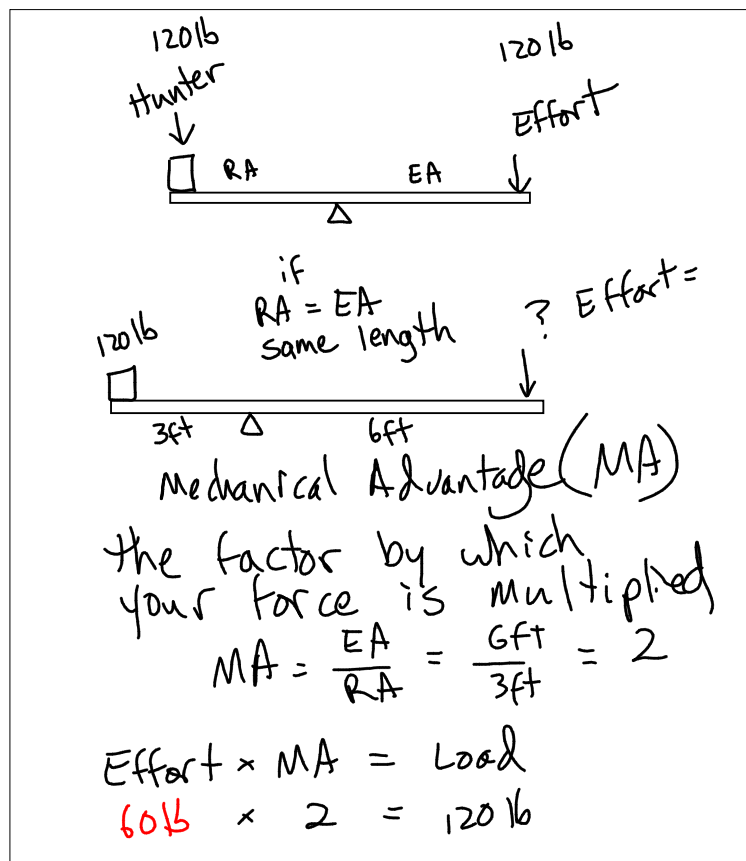 120lb 120lb
Hunter Effort
RA EA
if
RA = EA
same length
120lb ? Effort =
3ft 6ft
Mechanical Advantage (MA)
the factor by which
your force is multiplied
MA = EA/RA = 6ft/3ft = 2
Effort × MA = Load
60lb × 2 = 120lb